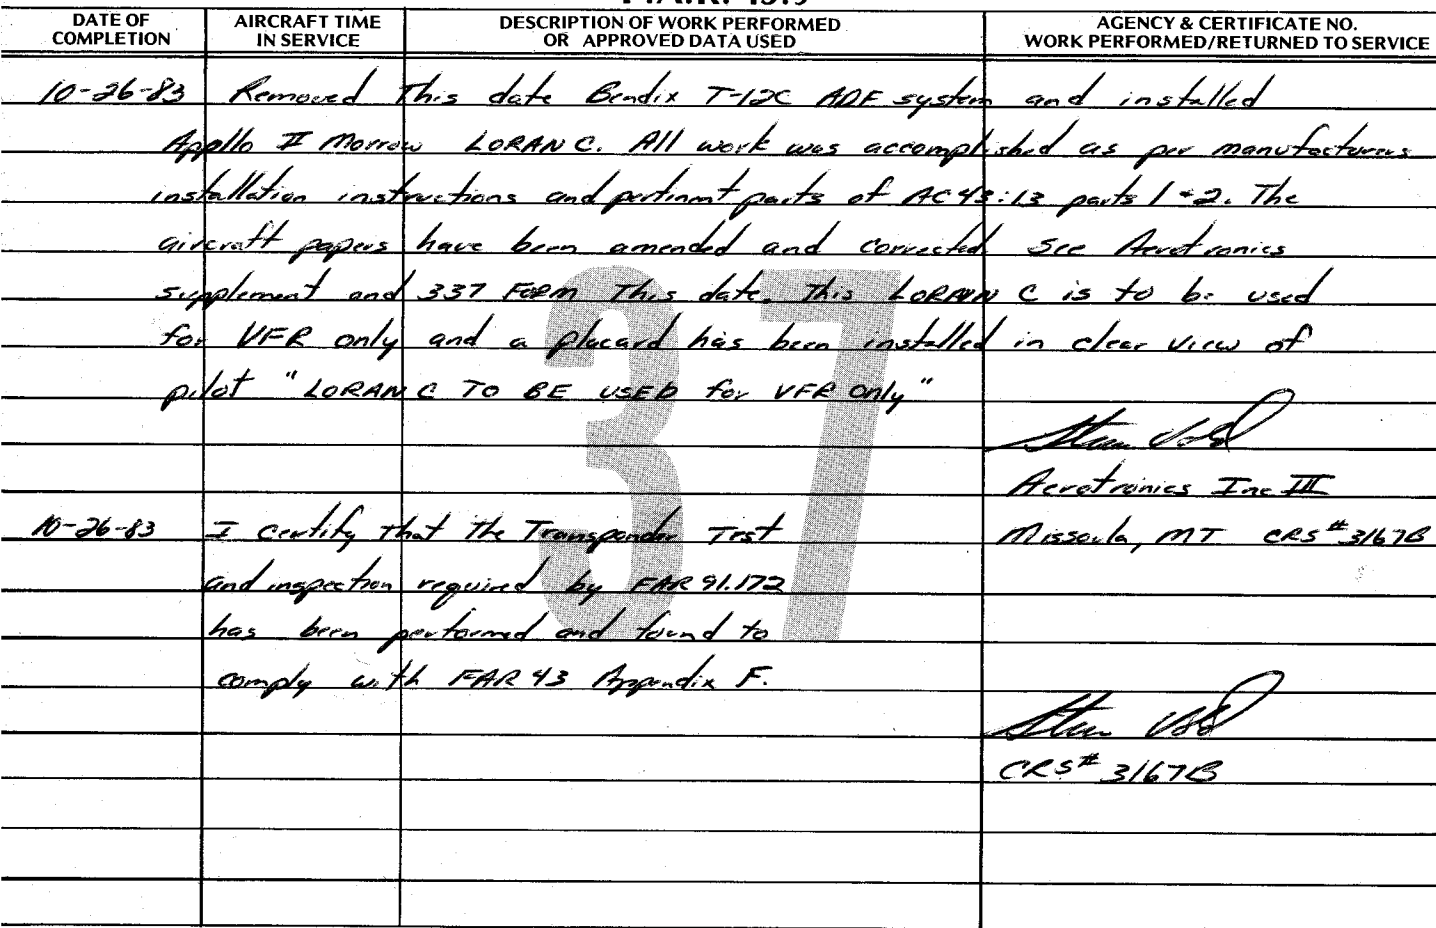 F.A.R. 43.9
DATE OF COMPLETION
AIRCRAFT TIME IN SERVICE
DESCRIPTION OF WORK PERFORMED OR APPROVED DATA USED
AGENCY & CERTIFICATE NO. WORK PERFORMED/RETURNED TO SERVICE
10-26-83 Removed This date Bendix T-12C ADF system and installed
Apollo II Morrow LORAN C. All work was accomplished as per manufacturers
installation instructions and pertinent parts of AC 43:13 parts 1+2. The
aircraft papers have been amended and corrected. See Aerotronics
supplement and 337 FORM This date. This LORAN C is to be used
for VFR only and a placard has been installed in clear view of
pilot "LORAN C TO BE USED for VFR only"
Aerotronics Inc III
10-26-83 I certify that the Transponder Test
Missoula, MT CRS# 3167B
and inspection required by FAR 91.172
has been performed and found to
comply with FAR 43 Appendix F.
CRS# 3167B
37